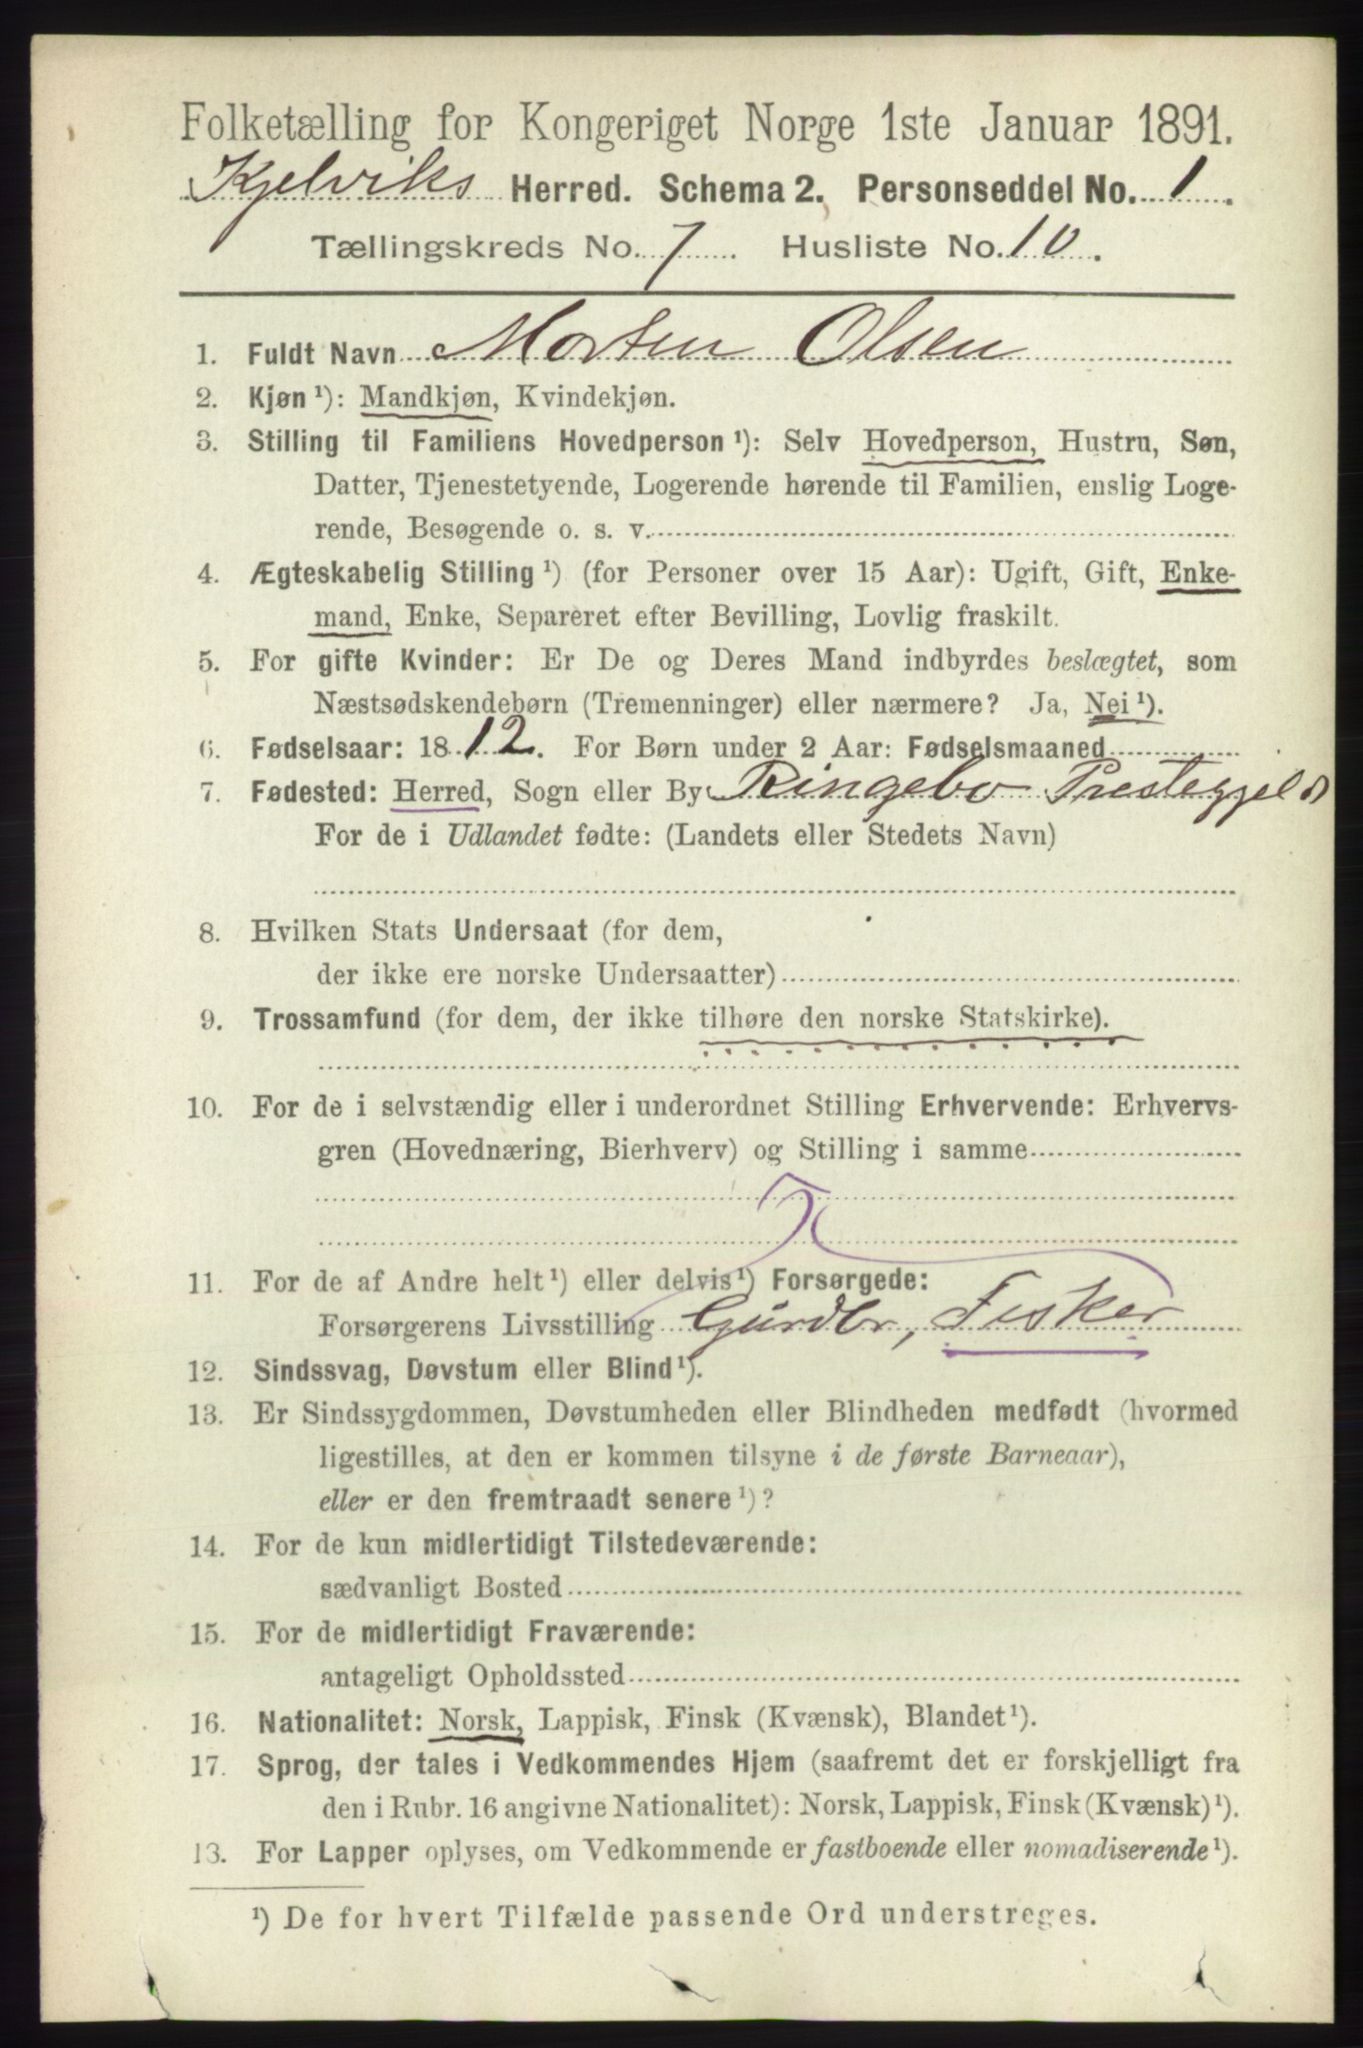 Folketælling for Kongeriget Norge 1ste Januar 1891.
Kjelviks Herred. Schema 2. Personseddel No. 1.
Tællingskreds No. 7. Husliste No. 10.
1. Fuldt Navn Morten Olsen
2. Kjøn ¹): Mandkjøn, Kvindekjøn.
3. Stilling til Familiens Hovedperson ¹): Selv Hovedperson, Hustru, Søn,
Datter, Tjenestetyende, Logerende hørende til Familien, enslig Loge-
rende, Besøgende o. s. v.
4. Ægteskabelig Stilling ¹) (for Personer over 15 Aar): Ugift, Gift, Enke-
mand, Enke, Separeret efter Bevilling, Lovlig fraskilt.
5. For gifte Kvinder: Er De og Deres Mand indbyrdes beslægtet, som
Næstsødskendebørn (Tremenninger) eller nærmere? Ja, Nei ¹).
6. Fødselsaar: 1812. For Børn under 2 Aar: Fødselsmaaned
7. Fødested: Herred, Sogn eller By Ringebo Prestegjeld
For de i Udlandet fødte: (Landets eller Stedets Navn)
8. Hvilken Stats Undersaat (for dem,
der ikke ere norske Undersaatter)
9. Trossamfund (for dem, der ikke tilhøre den norske Statskirke).
10. For de i selvstændig eller i underordnet Stilling Erhvervende: Erhvervs-
gren (Hovednæring, Bierhverv) og Stilling i samme
11. For de af Andre helt ¹) eller delvis ¹) Forsørgede:
Forsørgerens Livsstilling Gårdbr, Fisker
12. Sindssvag, Døvstum eller Blind ¹).
13. Er Sindssygdommen, Døvstumheden eller Blindheden medfødt (hvormed
ligestilles, at den er kommen tilsyne i de første Barneaar),
eller er den fremtraadt senere ¹)?
14. For de kun midlertidigt Tilstedeværende:
sædvanligt Bosted
15. For de midlertidigt Fraværende:
antageligt Opholdssted
16. Nationalitet: Norsk, Lappisk, Finsk (Kvænsk), Blandet ¹).
17. Sprog, der tales i Vedkommendes Hjem (saafremt det er forskjelligt fra
den i Rubr. 16 angivne Nationalitet): Norsk, Lappisk, Finsk (Kvænsk) ¹).
13. For Lapper oplyses, om Vedkommende er fastboende eller nomadiserende ¹).
¹) De for hvert Tilfælde passende Ord understreges.